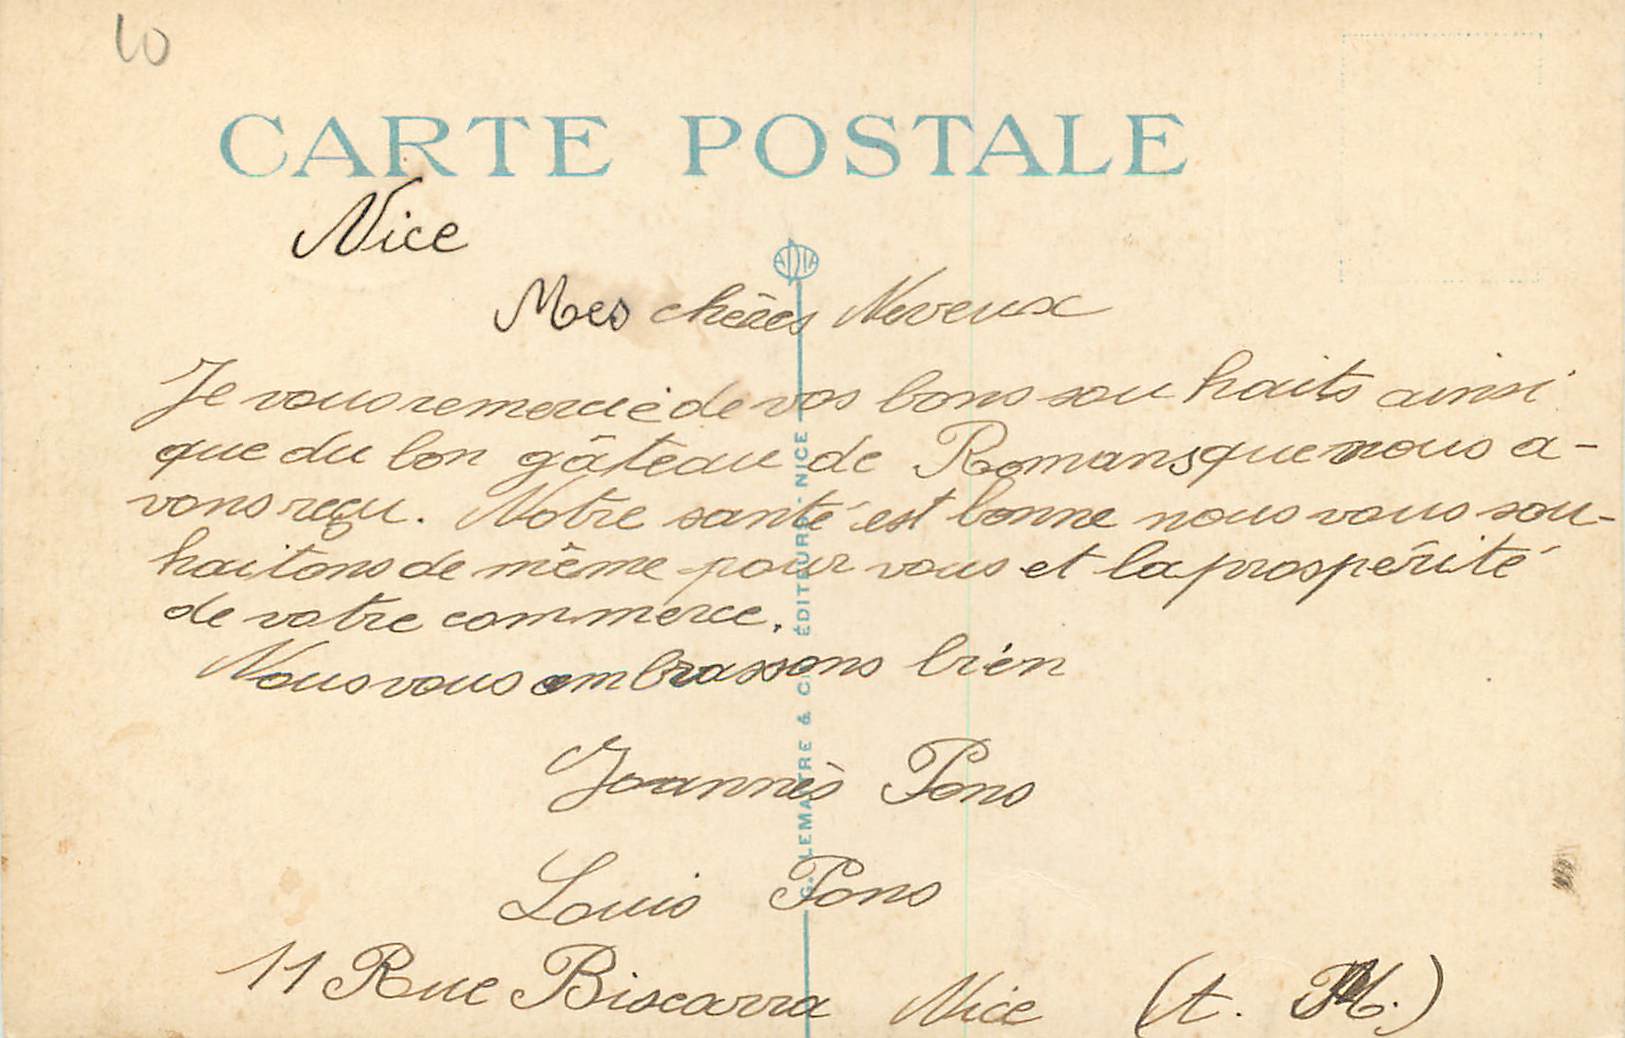 10
CARTE POSTALE
Nice
ADIA
Mes chères Neveux
Je vous remercie de vos bons souhaits ainsi
que du bon gâteau de Romans que nous a-
vons reçu. Notre santé est bonne nous vous sou-
haitons de même pour vous et la prospérité
de votre commerce.
Nous vous embrassons bien
Joannès Pons
Louis Pons
11 Rue Biscarra Nice (A. M.)
G. LEMAITRE & CIE ÉDITEURS - NICE